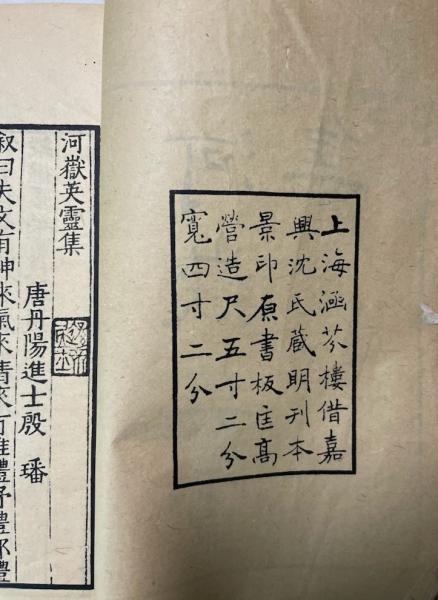 上海涵芬樓借嘉
興沈氏藏明刊本
景印原書板匡高
營造尺五寸二分
寬四寸二分
河嶽英靈集
唐丹陽進士殷璠
叙曰夫文有神來氣來情來有雅體野體鄙體